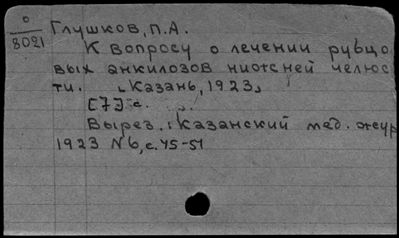 о
8021
Глушков, П.А.
К вопросу о лечении рубцо
вых анкилозов нижней челюс
ти. [Казань, 1923]
[7] с.
Вырез.: Казанский мед. жур
1923 №6, с. 45-51